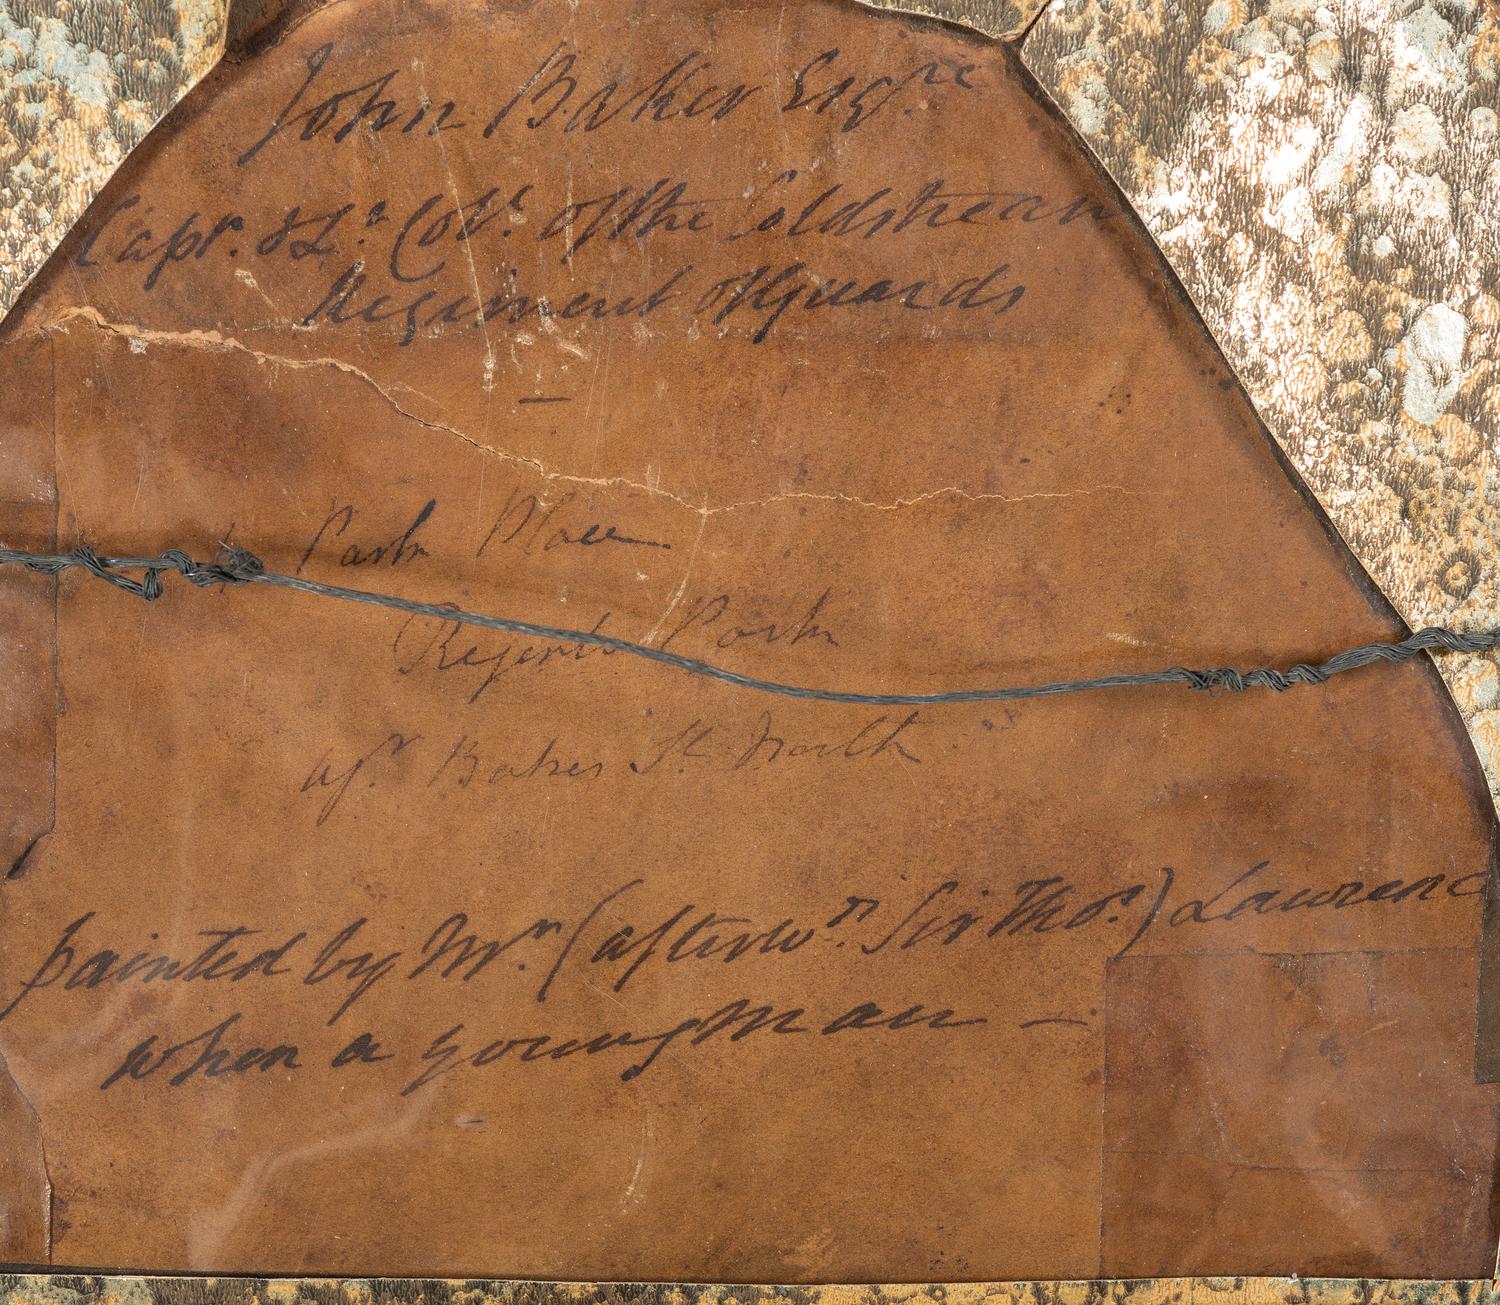 John Baker Esqre
Capt. & Lt. Col. of the Coldstream
Regiment of Guards
—
Park Place
Regents Park
Baker St. North
painted by Mr. (afterws. Sir Thos.) Lawrence
when a young man —